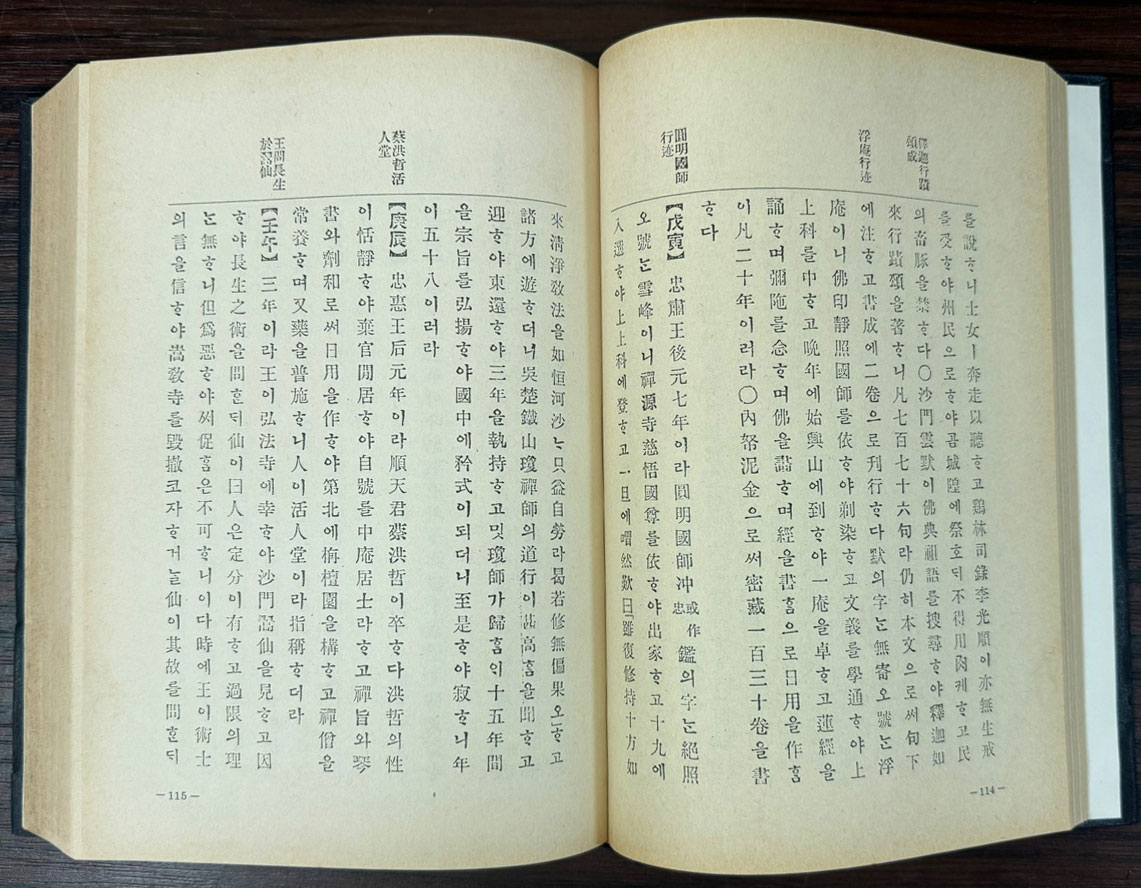 釋迦行蹟
頌成
浮庵行迹
圓明國師
行迹
를說ᄒᆞ니士女ㅣ奔走以聽ᄒᆞ고鷄林司錄李光順이亦無生戒
를受ᄒᆞ야州民으로ᄒᆞ야곰城隍에祭호ᄃᆡ不得用肉케ᄒᆞ고民
의畜豚을禁ᄒᆞ다〇沙門雲默이佛典祖語를搜尋ᄒᆞ야釋迦如
來行蹟頌을著ᄒᆞ니凡七百七十六句라仍히本文으로써句下
에注ᄒᆞ고書成에二卷으로刊行ᄒᆞ다默의字ᄂᆞᆫ無寄오號ᄂᆞᆫ浮
庵이니佛印靜照國師를依ᄒᆞ야剃染ᄒᆞ고文義를學通ᄒᆞ야上
上科를中ᄒᆞ고晩年에始興山에到ᄒᆞ야一庵을卓ᄒᆞ고蓮經을
誦ᄒᆞ며彌陁를念ᄒᆞ며佛을畵ᄒᆞ며經을書홈으로日用을作홈
이凡二十年이러라〇內帑泥金으로써密藏一百三十卷을書
ᄒᆞ다
【戊寅】 忠肅王後元七年이라圓明國師冲或作忠鑑의字ᄂᆞᆫ絕照
오號ᄂᆞᆫ雪峰이니禪源寺慈悟國尊를依ᄒᆞ야出家ᄒᆞ고十九에
入選ᄒᆞ야上上科에登ᄒᆞ고一旦에喟然歎曰「雖復修持十方如
―114―
蔡洪哲活
人堂
王問長生
於翯仙
來淸淨敎法을如恒河沙ᄂᆞᆫ只益自勞라曷若修無偏果오」ᄒᆞ고
諸方에遊ᄒᆞ더니吳楚鐵山瓊禪師의道行이甚高홈을聞ᄒᆞ고
迎ᄒᆞ야東還ᄒᆞ야三年을執持ᄒᆞ고밋瓊師가歸홈ᄋᆡ十五年間
을宗旨를弘揚ᄒᆞ야國中에矜式이되더니至是ᄒᆞ야寂ᄒᆞ니年
이五十八이러라
【庚辰】 忠惠王后元年이라順天君蔡洪哲이卒ᄒᆞ다洪哲의性
이恬靜ᄒᆞ야棄官閒居ᄒᆞ야自號를中庵居士라ᄒᆞ고禪旨와琴
書와劑和로써日用을作ᄒᆞ야第北에栴檀園을構ᄒᆞ고禪僧을
常養ᄒᆞ며又藥을普施ᄒᆞ니人이活人堂이라指稱ᄒᆞ더라
【壬午】 三年이라王이弘法寺에幸ᄒᆞ야沙門翯仙을見ᄒᆞ고因
ᄒᆞ야長生之術을問ᄒᆞᆫᄃᆡ仙이曰人은定分이有ᄒᆞ고過限의理
ᄂᆞᆫ無ᄒᆞ니但爲惡ᄒᆞ야써促홈은不可ᄒᆞ니이다時에王이術士
의言을信ᄒᆞ야嵩敎寺를毁撤코자ᄒᆞ거ᄂᆞᆯ仙이其故를問ᄒᆞᆫᄃᆡ
―115―